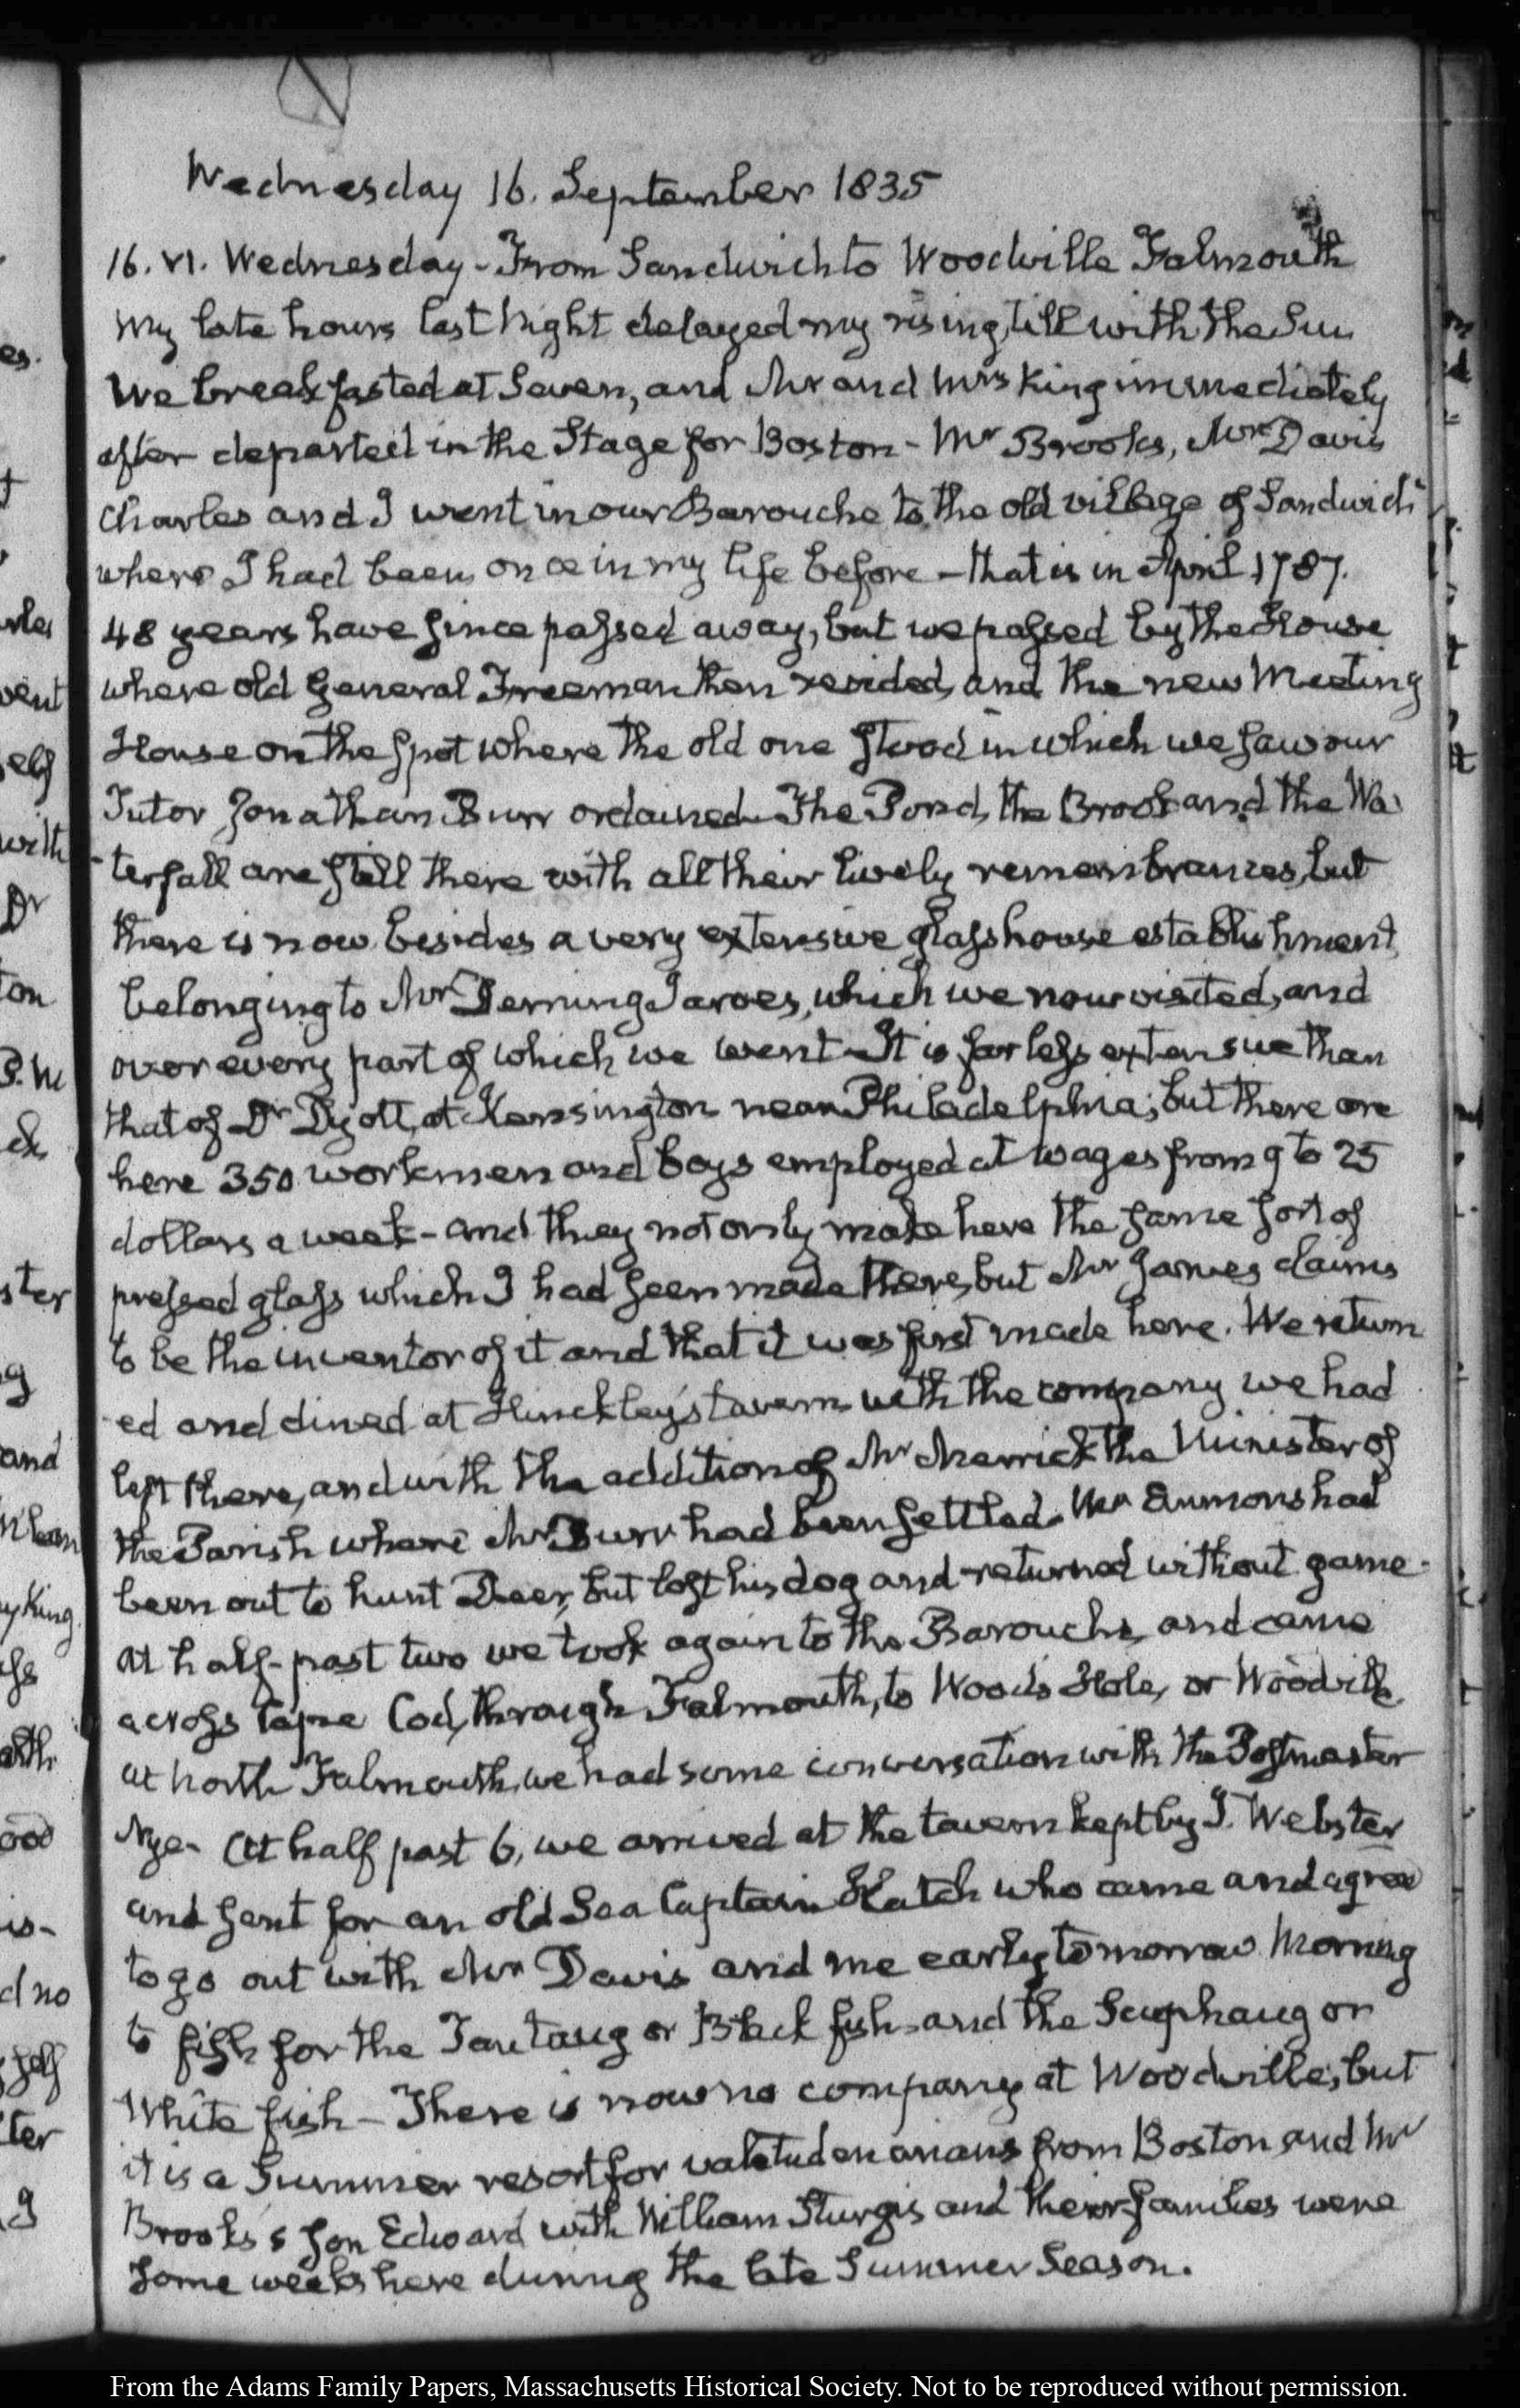 Wednesday 16. September 1835
16. VI. Wednesday - From Sandwich to Woodville Falmouth
My late hours last Night delayed my rising, till with the Sun
We breakfasted at Seven, and Mr and Mrs King immediately
after departed in the Stage for Boston - Mr Brooks, Mr Davis
Charles and I went in our Barouche to the old village of Sandwich
where I had been once in my life before - that is in April 1787.
48 years have since passed away, but we passed by the House
where old General Freeman then resided, and the new Meeting
House on the spot where the old one stood in which we saw our
Tutor Jonathan Burr ordained. The Pond, the Brook and the Wa
-terfall are still there with all their lively remembrances, but
there is now besides a very extensive glass house establishment,
belonging to Mr Deming Jarves, which we now visited, and
over every part of which we went - It is far less extensive than
that of Dr Dyott, at Kensington near Philadelphia; but there are
here 350 workmen and boys employed at wages from 9 to 25
dollars a week - and they not only make here the same sort of
pressed glass which I had seen made there, but Mr Jarves claims
to be the inventor of it and that it was first made here. We return
ed and dined at Hinckley's tavern with the company we had
left there, and with the addition of Mr Merrick the Minister of
the Parish where Mr Burr had been settled. Mr Emmons had
been out to hunt Deer, but lost his dog and returned without game.
At half-past two we took again to the Barouche, and came
across Cape Cod, through Falmouth, to Wood's Hole, or Woodville
at North Falmouth, we had some conversation with the Postmaster
Nye - At half past 6, we arrived at the tavern kept by J. Webster
and sent for an old Sea Captain Hatch who came and agreed
to go out with Mr Davis and me early tomorrow Morning
to fish for the Tautaug or Black fish and the Scuphaug or
White fish - There is now no company at Woodville; but
it is a Summer resort for valetudenarians from Boston, and Mr
Brooks's son Edward with William Sturgis and their families were
some weeks here during the late Summer Season.
From the Adams Family Papers, Massachusetts Historical Society. Not to be reproduced without permission.